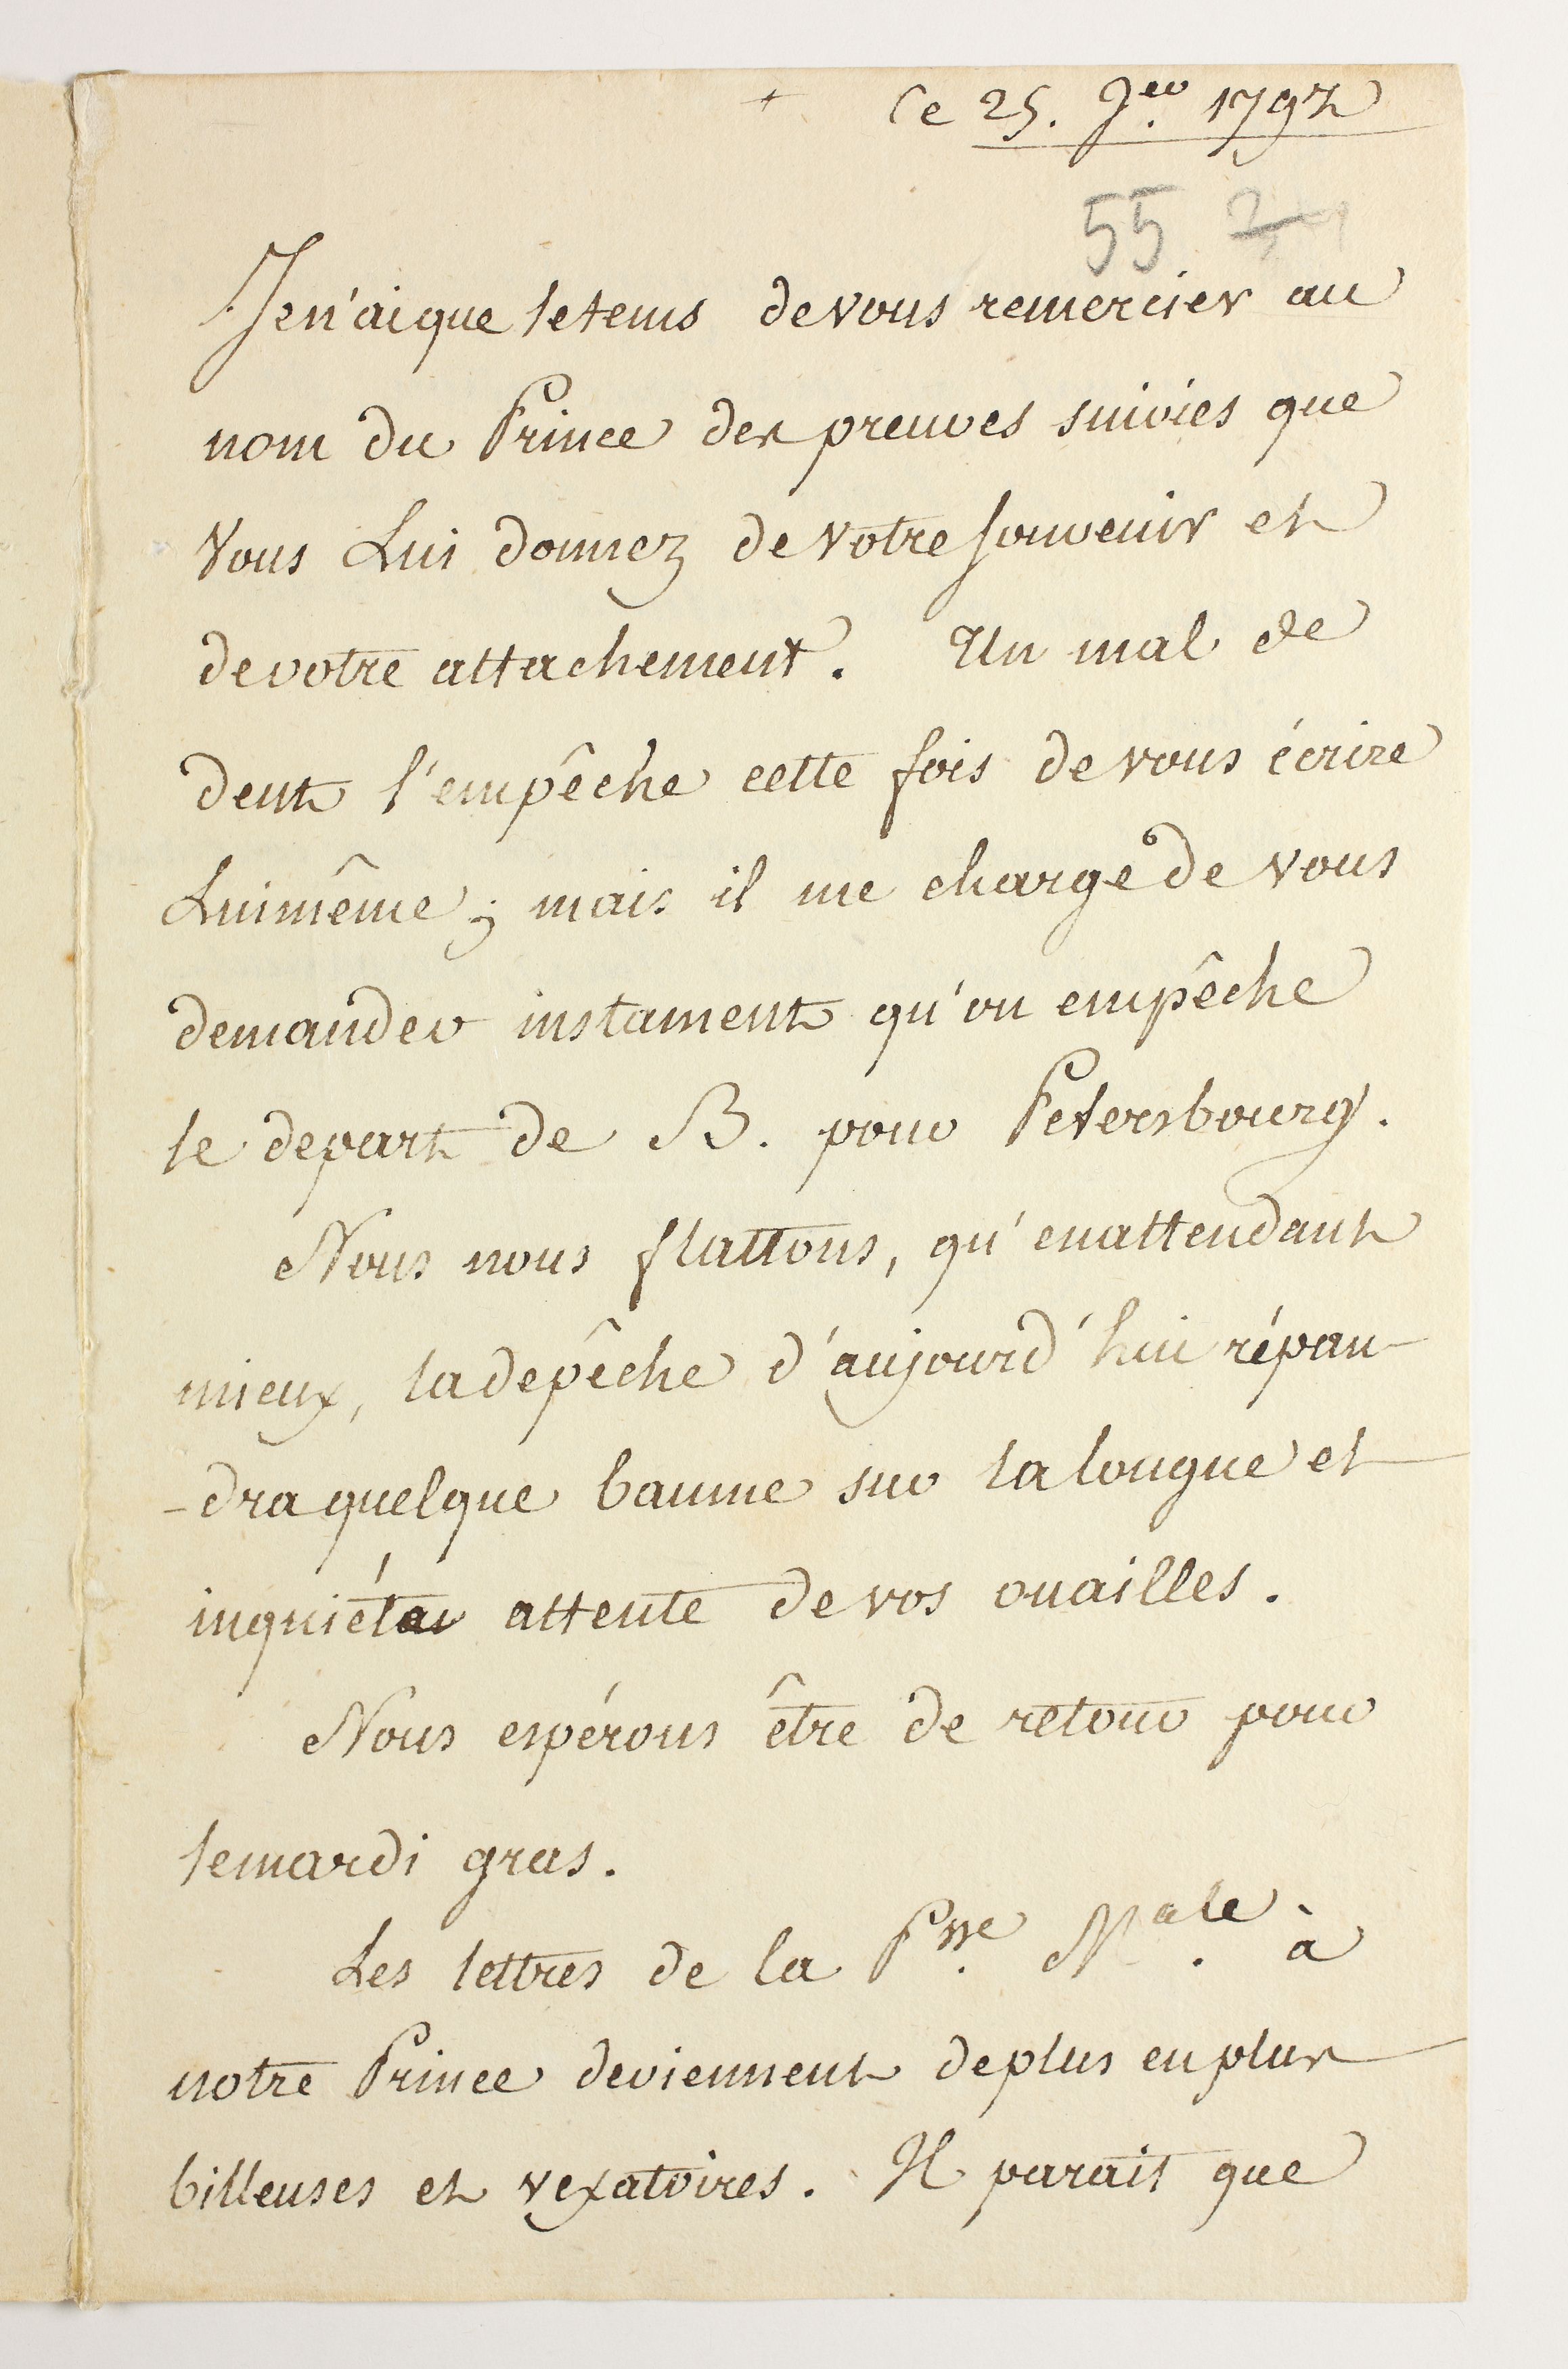 + Ce 25. Jer. 1792
55
Je n'ai que le tems de vous remercier au
nom du Prince des preuves suivies que
Vous Lui donnez de Votre souvenir et
de votre attachement. Un mal de
dent l'empêche cette fois de vous écrire
Lui même ; mais il me charge de vous
demander instament qu'on empêche
le depart de B. pour Petersbourg.
Nous nous flattons, qu'en attendant
mieux, la depêche d'aujourd'hui répan-
-dra quelque baume sur la longue et
inquiéte attente de vos ouailles.
Nous espérons être de retour pour
le mardi gras.
Les lettres de la Psse. Nale. à
notre Prince deviennent de plus en plus
billeuses et vexatoires. Il parait que